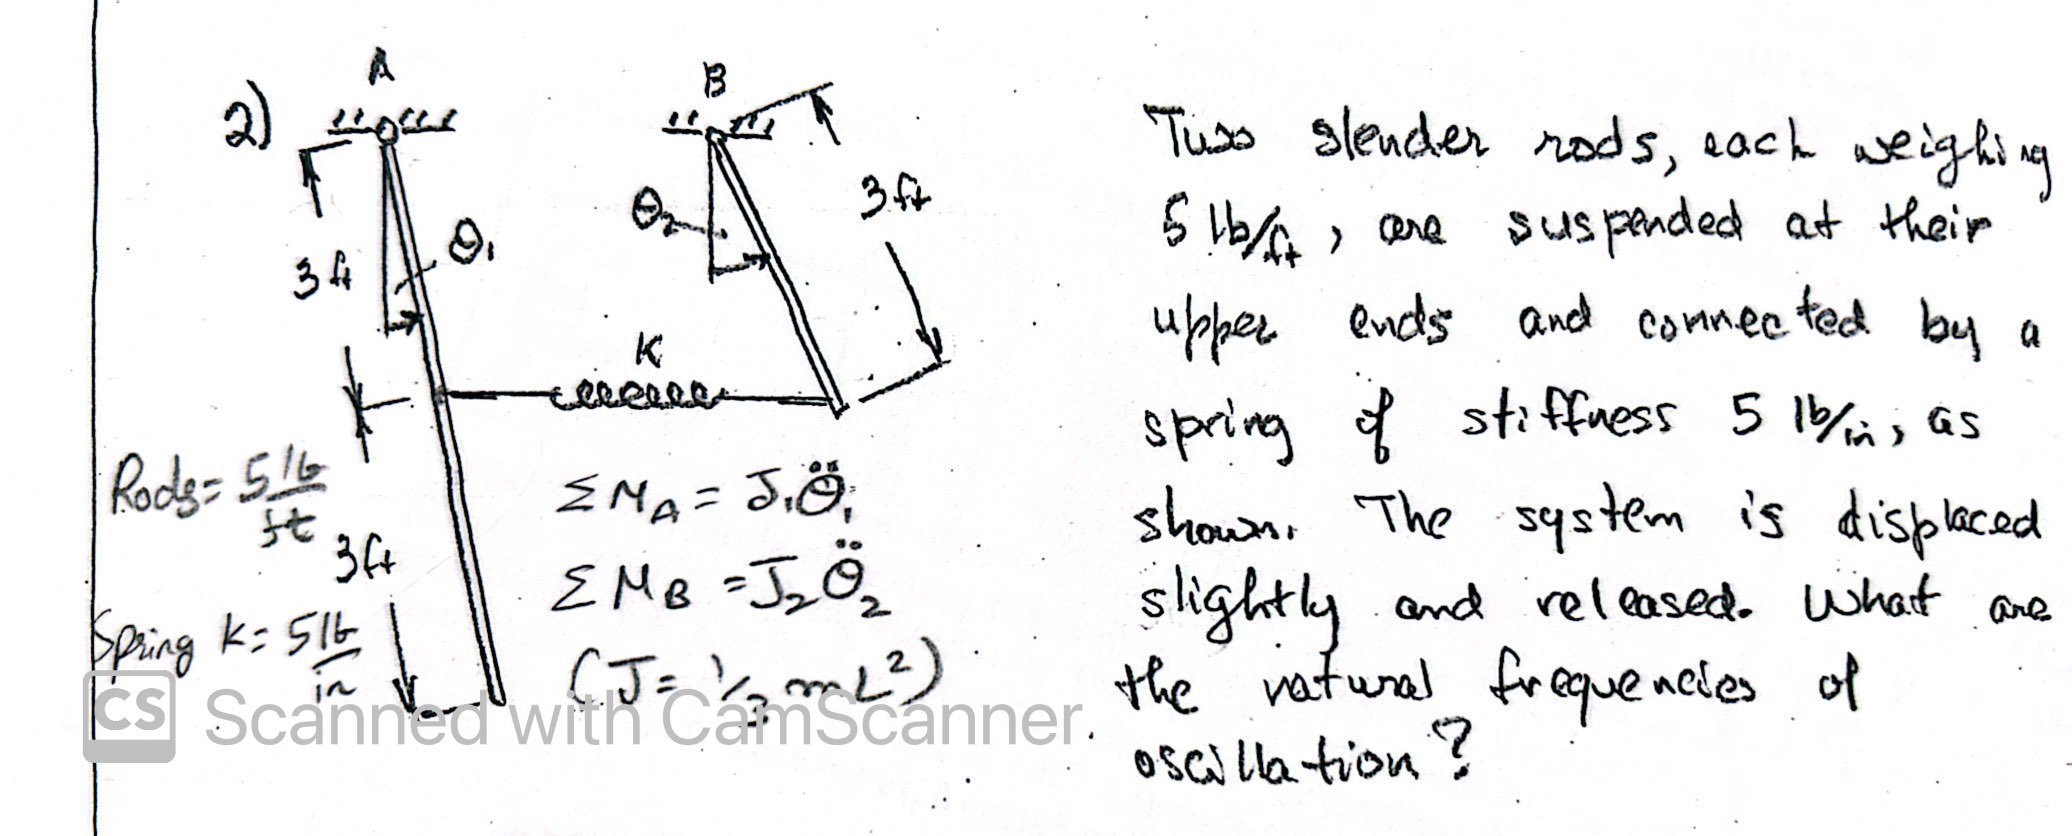 2)
A
B
3 ft
θ₁
θ₂
3 ft
K
Rods = 5 lb/ft
3 ft
Spring K = 5 lb/in
Σ M_A = J₁θ̈₁
Σ M_B = J₂θ̈₂
(J = 1/3 mL²)
Two slender rods, each weighing
5 lb/ft, are suspended at their
upper ends and connected by a
spring of stiffness 5 lb/in, as
shown. The system is displaced
slightly and released. What are
the natural frequencies of
oscillation?
CS Scanned with CamScanner